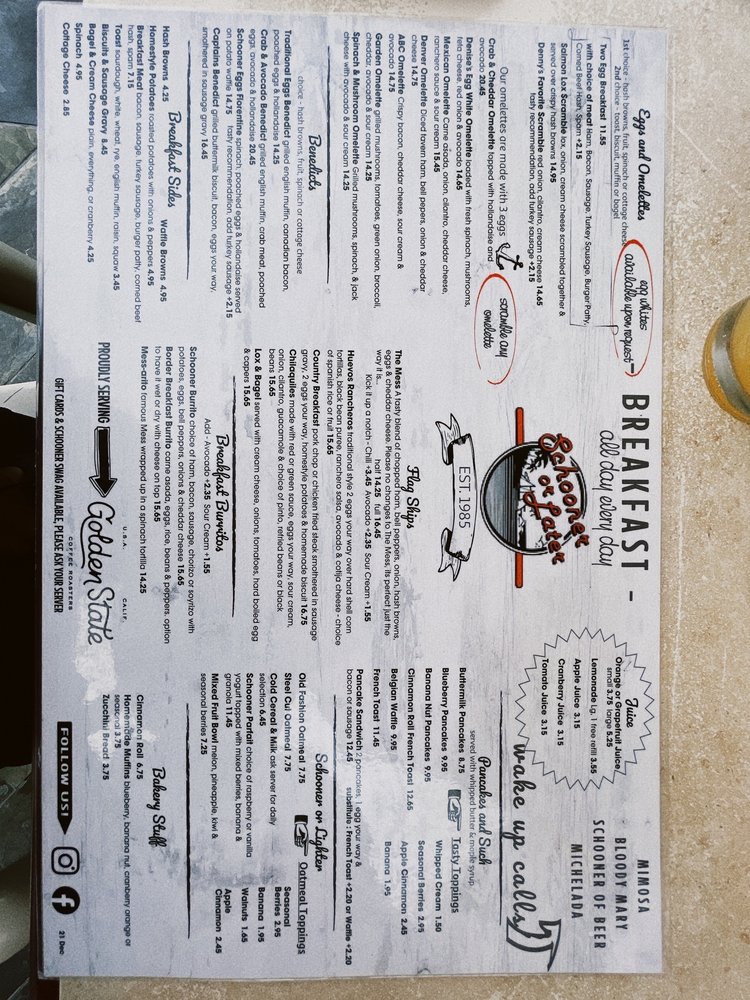 - BREAKFAST -
all day every day
Eggs and Omelettes
egg whites
available upon request
1st choice - hash browns, fruit, spinach or cottage cheese
2nd choice - toast, biscuit, muffin or bagel
Two Egg Breakfast 11.65
with choice of meat Ham, Bacon, Sausage, Turkey Sausage, Burger Patty,
Corned Beef Hash, Spam +2.15
Salmon Lox Scramble lox, onion, cream cheese scrambled together &
served over crispy hash browns 14.95
Denny's Favorite Scramble red onion, cilantro, cream cheese 14.65
tasty recommendation, add turkey sausage +2.15
Our omelettes are made with 3 eggs
scramble any
omelette
Crab & Cheddar Omelette topped with hollandaise and
avocado 20.45
Denise's Egg White Omelette loaded with fresh spinach, mushrooms,
feta cheese, red onion & avocado 14.65
Mexican Omelette carne asada, onion, cilantro, cheddar cheese,
ranchero sauce & sour cream 15.45
Denver Omelette Diced tavern ham, bell pepers, onion & cheddar
cheese 14.75
ABC Omelette Crispy bacon, cheddar cheese, sour cream &
avocado 14.75
Garden Omelette grilled mushrooms, tomatoes, green onion, broccoli,
cheddar, avocado & sour cream 14.25
Spinach & Mushroom Omelette Grilled mushrooms, spinach, & jack
cheese with avocado & sour cream 14.25
Benedicts
choice - hash browns, fruit, spinach or cottage cheese
Traditional Eggs Benedict grilled english muffin, canadian bacon,
poached eggs & hollandaise 14.25
Crab & Avocado Benedict grilled english muffin, crab meat, poached
eggs, avocado & hollandaise 20.45
Schooner Eggs Florentine spinach, poached eggs & hollandaise served
on potato waffle 14.75 tasty recommendation, add turkey sausage +2.15
Captains Benedict grilled buttermilk biscuit, bacon, eggs your way,
smothered in sausage gravy 16.45
Breakfast Sides
Hash Browns 4.25 Waffle Browns 4.95
Homestyle Potatoes roasted potatoes with onions & peppers 4.95
Breakfast Meat bacon, sausage, turkey sausage, burger patty, corned beef
hash, spam 7.15
Toast sourdough, white, wheat, rye, english muffin, raisin, squaw 3.45
Biscuits & Sausage Gravy 8.45
Bagel & Cream Cheese plain, everything, or cranberry 4.25
Spinach 4.95
Cottage Cheese 2.85
Schooner
or Later
EST. 1985
Flag Ships
The Mess A tasty blend of chopped ham, bell peppers, onion, hash browns,
eggs & cheddar cheese. Please no changes to The Mess, its perfect just the
way it is... half 14.25 full 16.45
Kick it up a notch - Chili +3.45 Avocado +2.35 Sour Cream +1.55
Huevos Rancheros traditional style 2 eggs your way over hard shell corn
tortillas, black bean puree, ranchero salsa, avocado & cotija cheese - choice
of spanish rice or fruit 15.65
Country Breakfast pork chop or chicken fried steak smothered in sausage
gravy, 2 eggs your way, homestyle potatoes & homemade biscuit 16.75
Chilaquiles made with red or green sauce, eggs your way, sour cream,
onion, cilantro, guacamole & choice of pinto, refried beans or black
beans 15.65
Lox & Bagel served with cream cheese, onions, tomatoes, hard boiled egg
& capers 15.65
Breakfast Burritos
Add - Avocado +2.35 Sour Cream +1.55
Schooner Burrito choice of ham, bacon, sausage, chorizo or soyrizo with
potatoes, eggs, bell peppers, onions & cheddar cheese 15.65
Border Breakfast Burrito carne asada, eggs, rice, beans & peppers, option
to have it wet or dry with cheese on top 15.65
Mess-arito famous Mess wrapped up in a spinach tortilla 14.25
PROUDLY SERVING
U.S.A. CALIF.
Golden State
COFFEE ROASTERS
GIFT CARDS & SCHOONER SWAG AVAILABLE, PLEASE ASK YOUR SERVER
Juice
Orange or Grapefruit Juice
small 3.75 large 5.25
Lemonade Lg. 1 free refill 3.55
Apple Juice 3.15
Cranberry Juice 3.15
Tomato Juice 3.15
MIMOSA
BLOODY MARY
SCHOONER OF BEER
MICHELADA
wake up calls
Pancakes and Such
served with whipped butter & maple syrup
Buttermilk Pancakes 8.75
Blueberry Pancakes 9.95
Banana Nut Pancakes 9.95
Cinnamon Roll French Toast 12.65
Belgian Waffle 9.95
French Toast 11.45
Pancake Sandwich 2 pancakes, 1 egg your way &
bacon or sausage 12.45 substitute: French Toast +2.20 or Waffle +2.20
Tasty Toppings
Whipped Cream 1.50
Seasonal Berries 2.95
Apple Cinnamon 2.45
Banana 1.95
Schooner or Lighter
Old Fashion Oatmeal 7.75
Steel Cut Oatmeal 7.75
Cold Cereal & Milk ask server for daily
selection 6.45
Schooner Parfait choice of raspberry or vanilla
yogurt topped with mixed berries, banana &
granola 11.45
Mixed Fruit Bowl melon, pineapple, kiwi &
seasonal berries 7.25
Oatmeal Toppings
Seasonal
Berries 2.95
Banana 1.95
Walnuts 1.65
Apple
Cinnamon 2.45
Bakery Stuff
Cinnamon Roll 6.75
Homemade Muffins blueberry, banana nut, cranberry orange or
seasonal 3.75
Zucchini Bread 3.75
FOLLOW US!
21 Dec